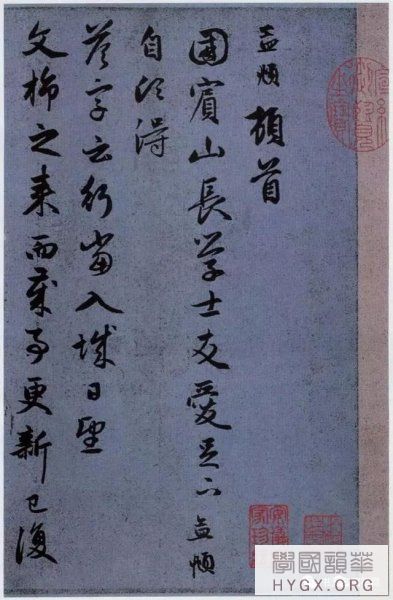 孟頫頓首
國賓山長學士友愛足下孟頫
自頃得
答字云行當入城日望
文旆之来而歲事更新已復
安儀周家珍藏
學國韻華
HYGX.ORG